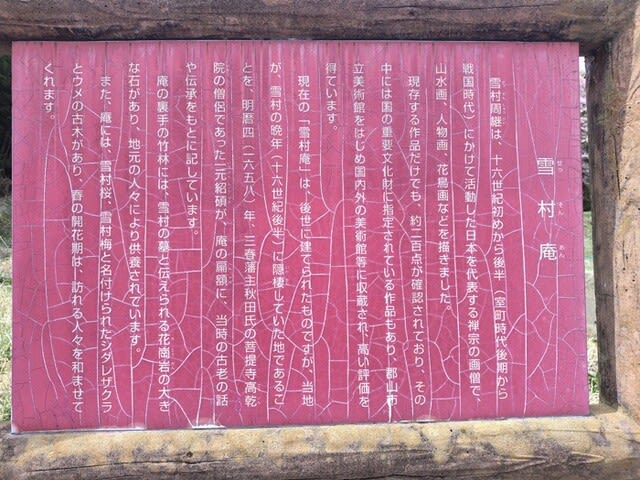 雪村庵
せっそんあん
雪村周継は、十六世紀初めから後半（室町時代後期から
戦国時代）にかけて活動した日本を代表する禅宗の画僧で、
山水画、人物画、花鳥画などを描きました。
現存する作品だけでも、約二百点が確認されており、その
中には国の重要文化財に指定されている作品もあり、郡山市
立美術館をはじめ国内外の美術館等に収蔵され、高い評価を
得ています。
現在の「雪村庵」は、後世に建てられたものですが、当地
が、雪村の晩年（十六世紀後半）に隠棲していた地であるこ
とを、明暦四（一六五八）年、三春藩主秋田氏の菩提寺高乾
院の僧侶であった一元紹碩が、庵の扁額に、当時の古老の話
や伝承をもとに記しています。
庵の裏手の竹林には、雪村の墓と伝えられる花崗岩の大き
な石があり、地元の人々により供養されています。
また、庵には、雪村桜、雪村梅と名付けられたシダレザクラ
とウメの古木があり、春の開花期は、訪れる人々を和ませて
くれます。